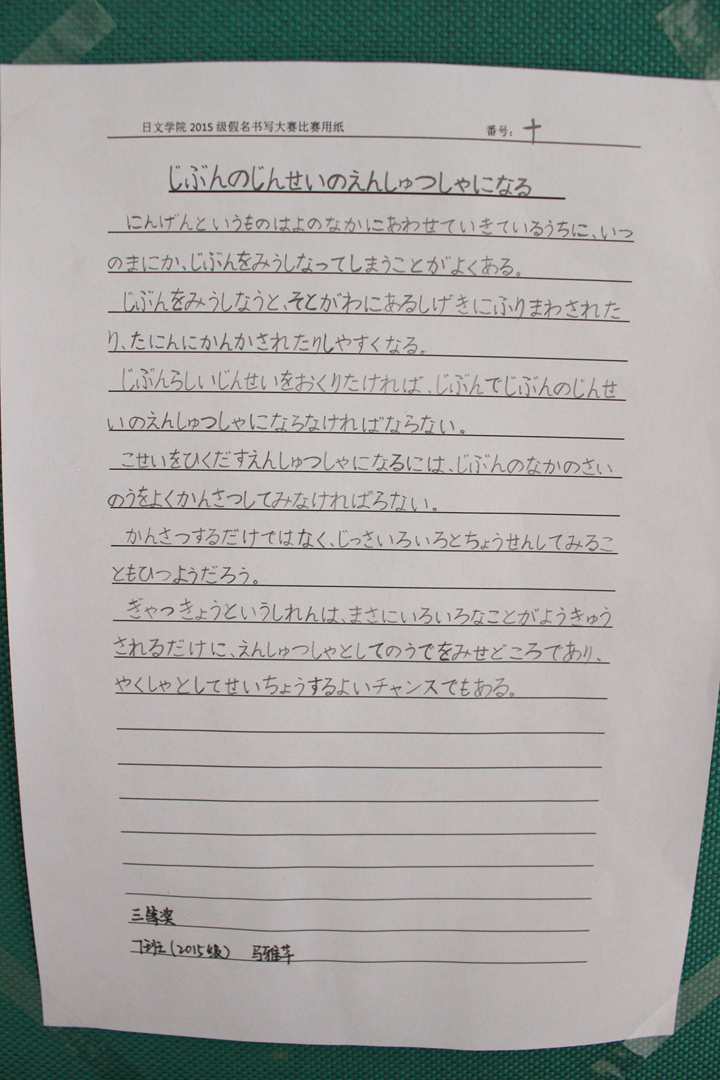 日文学院 2015 级假名书写大赛比赛用纸 番号：十
じぶんのじんせいのえんしゅつしゃになる
にんげんというものはよのなかにあわせていきているうちに、いつ
のまにか、じぶんをみうしなってしまうことがよくある。
じぶんをみうしなうと、そとがわにあるしげきにふりまわされた
り、たにんにかんかされたりしやすくなる。
じぶんらしいじんせいをおくりたければ、じぶんでじぶんのじんせ
いのえんしゅつしゃにならなければならない。
こせいをひくだすえんしゅつしゃになるには、じぶんのなかのさい
のうをよくかんさつしてみなければろない。
かんさつするだけではなく、じっさいろいろとちょうせんしてみるこ
ともひつようだろう。
ぎゃっきょうというしれんは、まさにいろいろなことがようきゅう
されるだけに、えんしゅつしゃとしてのうでをみせどころであり、
やくしゃとしてせいちょうするよいチャンスでもある。
三等奖
7班(2015级) 马雅芊